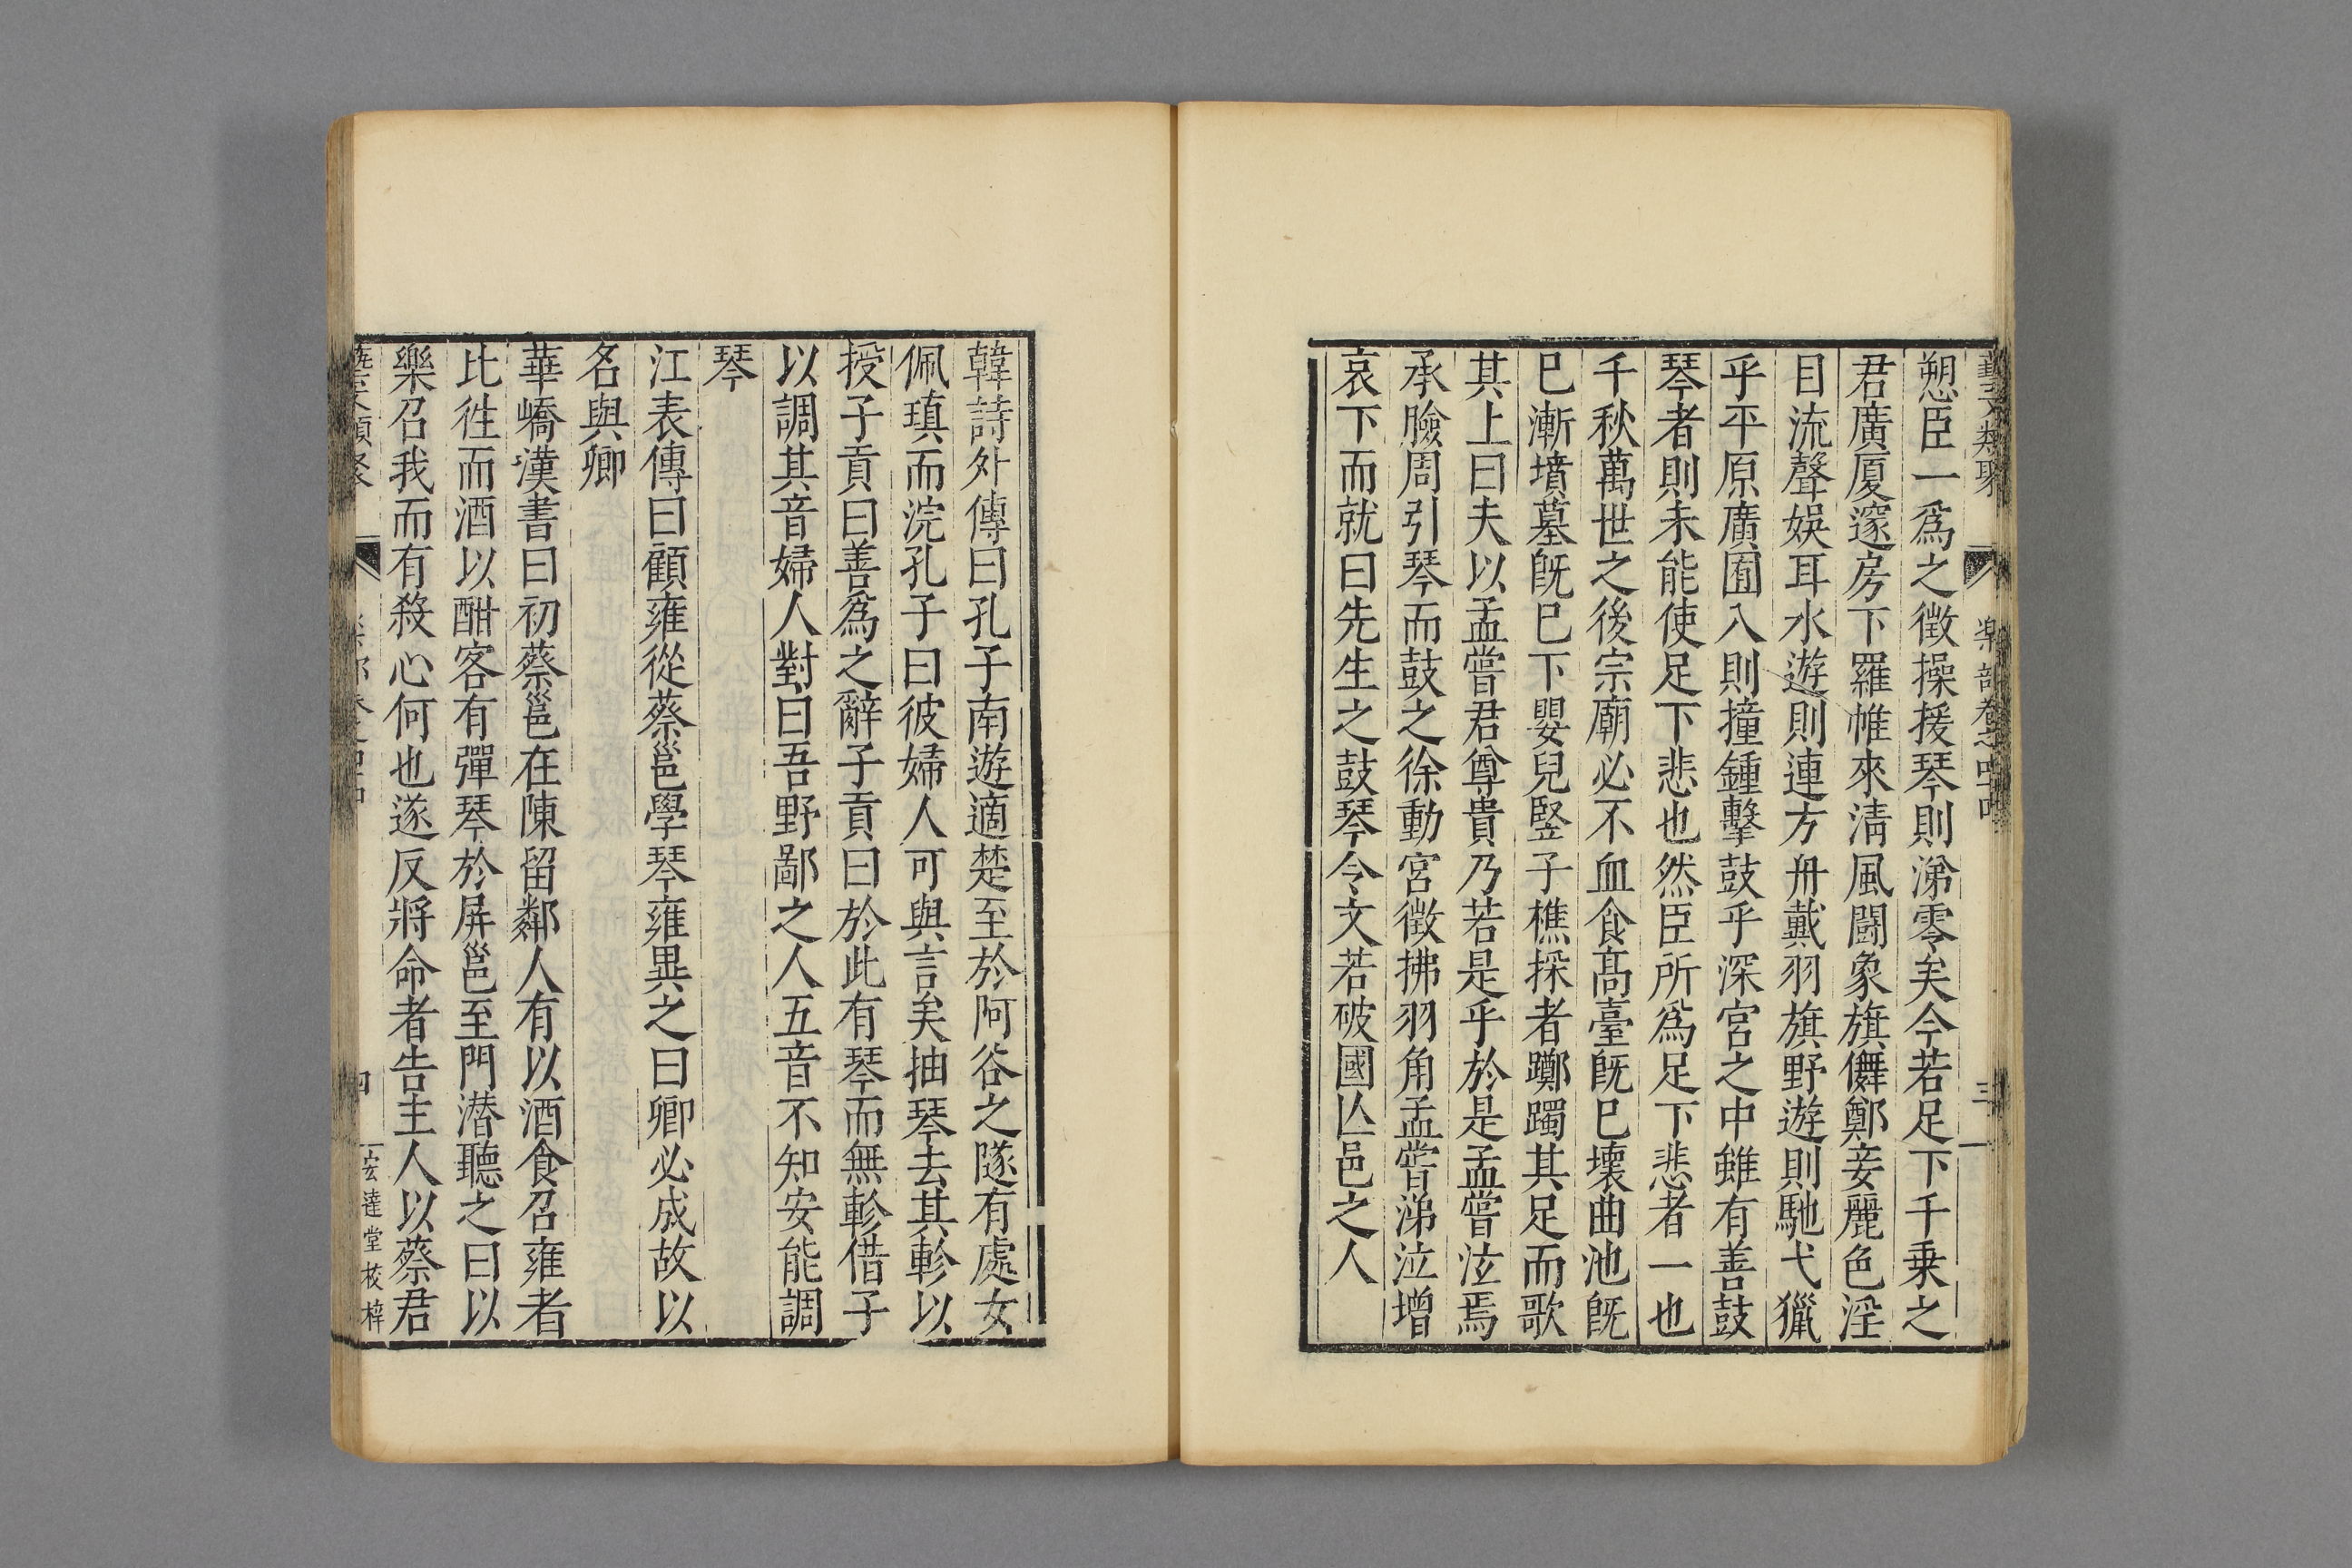 藝文類聚 樂部卷之四十四 三
愬臣一爲之徵操援琴則涕零矣今若足下千乗之
君廣厦邃房下羅帷來淸風闘象旗儛鄭妾麗色淫
目流聲娛耳水遊則連方舟戴羽旗野遊則馳弋獵
乎平原廣囿入則撞鍾擊鼓乎深宮之中雖有善鼓
琴者則未能使足下悲也然臣所爲足下悲者一也
千秋萬世之後宗廟必不血食髙臺旣巳壞曲池旣
巳漸墳墓旣巳下嬰兒竪子樵採者躑躅其足而歌
其上曰夫以孟嘗君尊貴乃若是乎於是孟嘗泫焉
承臉周引琴而鼓之徐動宮徵拂羽角孟嘗涕泣増
哀下而就曰先生之鼓琴令文若破國亾邑之人
韓詩外傳曰孔子南遊適楚至於阿谷之隧有處女
佩瑱而浣孔子曰彼婦人可與言矣抽琴去其軫以
授子貢曰善爲之辭子貢曰於此有琴而無軫借子
以調其音婦人對曰吾野鄙之人五音不知安能調
琴
江表傳曰顧雍從蔡邕學琴雍異之曰卿必成故以
名與卿
華嶠漢書曰初蔡邕在陳留鄰人有以酒食召雍者
比徃而酒以酣客有彈琴於屏邕至門潜聽之曰以
樂召我而有殺心何也遂反將命者告主人以蔡君
藝文類聚 樂部卷之四十四 四 宏達堂校梓